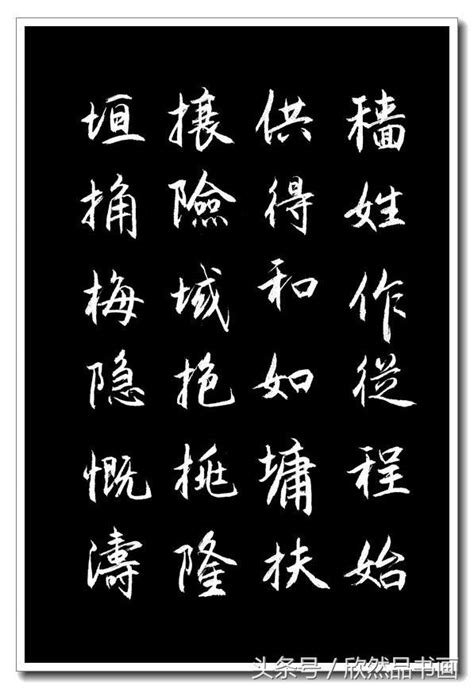 穡姓作從程始
供得和如墉扶
攘險域抱挑隆
垣捅梅隐慨濤
头条号 / 欣然品书画